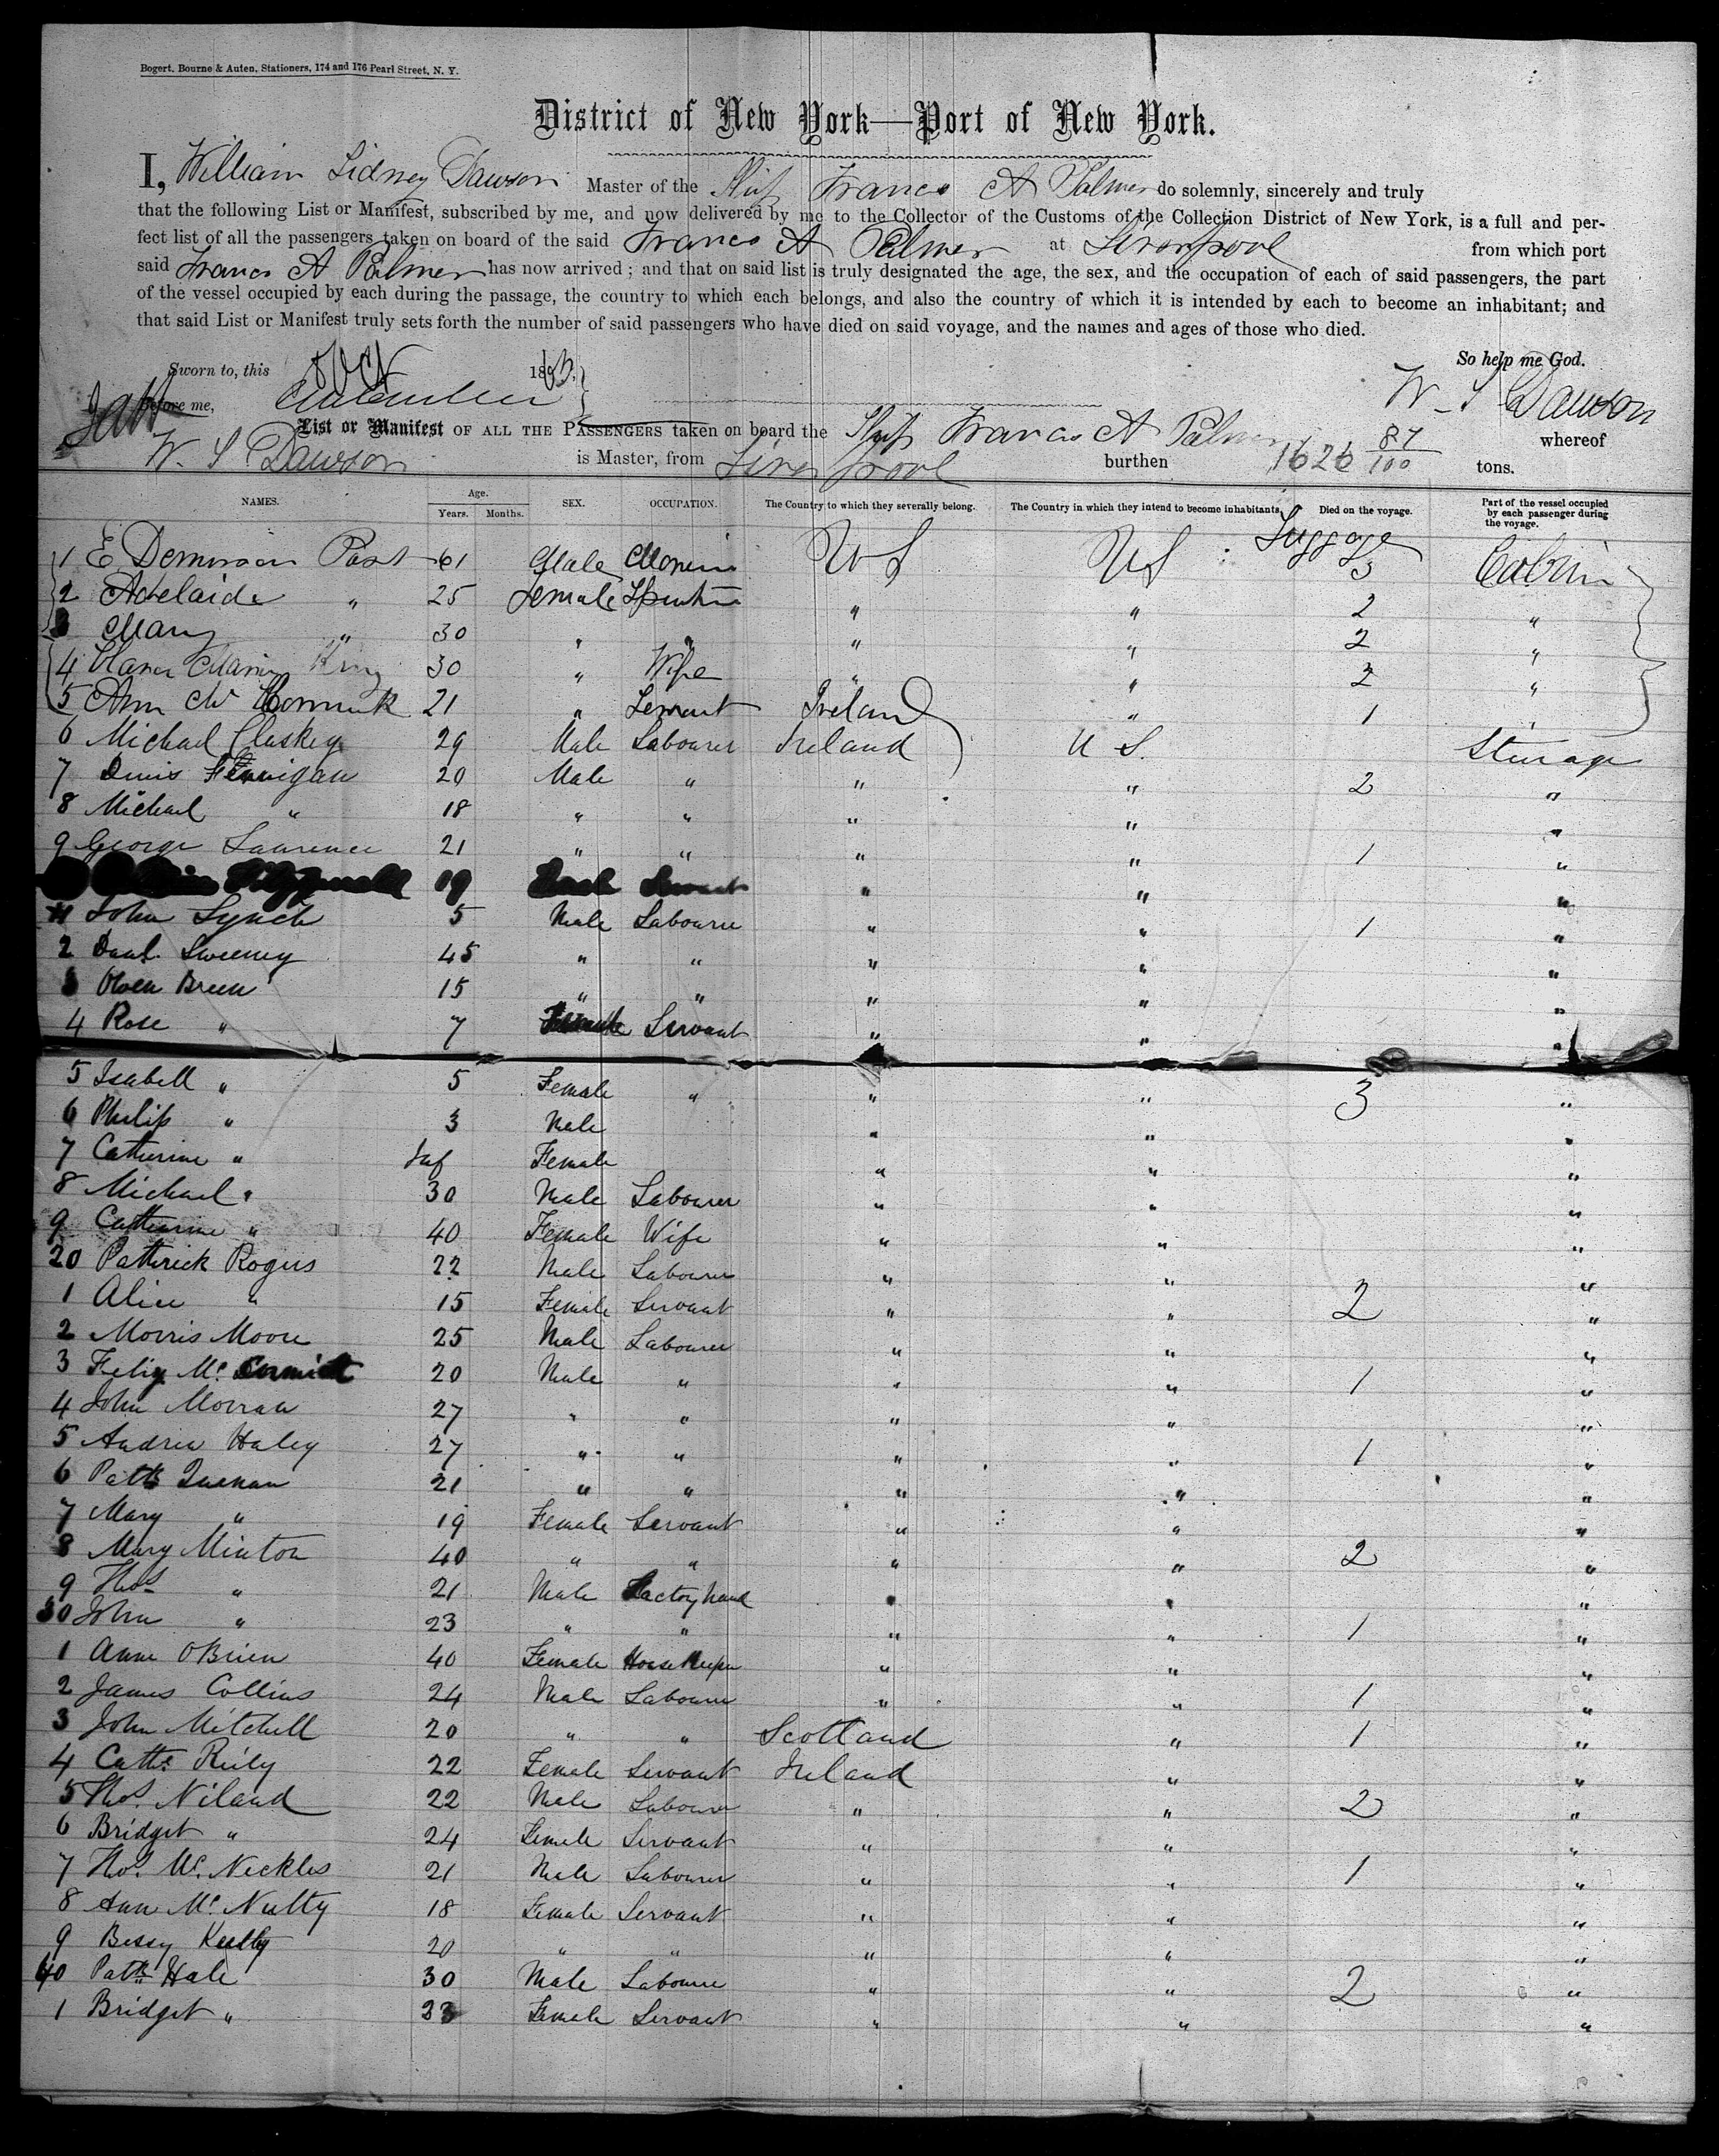 Bogert, Bourne & Auten, Stationers, 174 and 176 Pearl Street, N. Y.
District of New York—Port of New York.
I, William Sidney Dawson Master of the Ship Francis A Palmer do solemnly, sincerely and truly
that the following List or Manifest, subscribed by me, and now delivered by me to the Collector of the Customs of the Collection District of New York, is a full and per-
fect list of all the passengers taken on board of the said Francis A Palmer at Liverpool from which port
said Francis A Palmer has now arrived; and that on said list is truly designated the age, the sex, and the occupation of each of said passengers, the part
of the vessel occupied by each during the passage, the country to which each belongs, and also the country of which it is intended by each to become an inhabitant; and
that said List or Manifest truly sets forth the number of said passengers who have died on said voyage, and the names and ages of those who died.
Sworn to, this 186 So help me God.
Before me, W. S Dawson
List or Manifest OF ALL THE PASSENGERS taken on board the Ship Francis A Palmer whereof
W. S Dawson is Master, from Liverpool burthen 1626 87/100 tons.
NAMES. Age. Years. Months. SEX. OCCUPATION. The Country to which they severally belong. The Country in which they intend to become inhabitants. Died on the voyage. Part of the vessel occupied by each passenger during the voyage.
Luggage
1 E Post 61 Male US US 3 Cabin
2 Adelaide " 25 Female " " 2 "
3 Mary " 30 " " " " 2 "
4 King 30 " Wife " " 2 "
5 Ann Mc Cormick 21 " Servant Ireland " 1 "
6 Michael Cluskey 29 Male Labourer Ireland U S. Steerage
7 Dinis Finnigan 20 Male " " " 2 "
8 Michael " 18 " " " " "
9 George Lawrence 21 " " " " 1 "
19 " " "
11 John Lynch 5 Male Labourer " " 1 "
2 Danl. Sweeney 45 " " " " "
3 Owen Breen 15 " " " " "
4 Rose " 7 Female Servant " " "
5 Isabell " 5 Female " " " 3 "
6 Philip " 3 Male " " "
7 Catherine " Inf Female " " "
8 Michael " 30 Male Labourer " " "
9 Catherine " 40 Female Wife " " "
20 Patterick Rogers 22 Male Labourer " " "
1 Alice " 15 Female Servant " " 2 "
2 Morris Moore 25 Male Labourer " " "
3 Felix Mc. 20 Male " " " 1 "
4 John Morran 27 " " " " "
5 Andrew Haley 27 " " " " 1 "
6 Patk 21 " " " " "
7 Mary " 19 Female Servant " " "
8 Mary Minton 40 " " " " 2 "
9 Thos " 21 Male Factory hand " " "
30 John " 23 " " " " 1 "
1 Anne OBrien 40 Female House Keeper " " "
2 James Collins 24 Male Labourer " " 1 "
3 John Mitchell 20 " " Scotland " 1 "
4 Cathe. Reily 22 Female Servant Ireland " "
5 Thos. Niland 22 Male Labourer " " 2 "
6 Bridget " 24 Female Servant " " "
7 Thos. Mc. Neckles 21 Male Labourer " " 1 "
8 Ann Mc. Nulty 18 Female Servant " " "
9 Bessy 20 " " " " "
40 Patk Hale 30 Male Labourer " " 2 "
1 Bridget " 23 Female Servant " " "